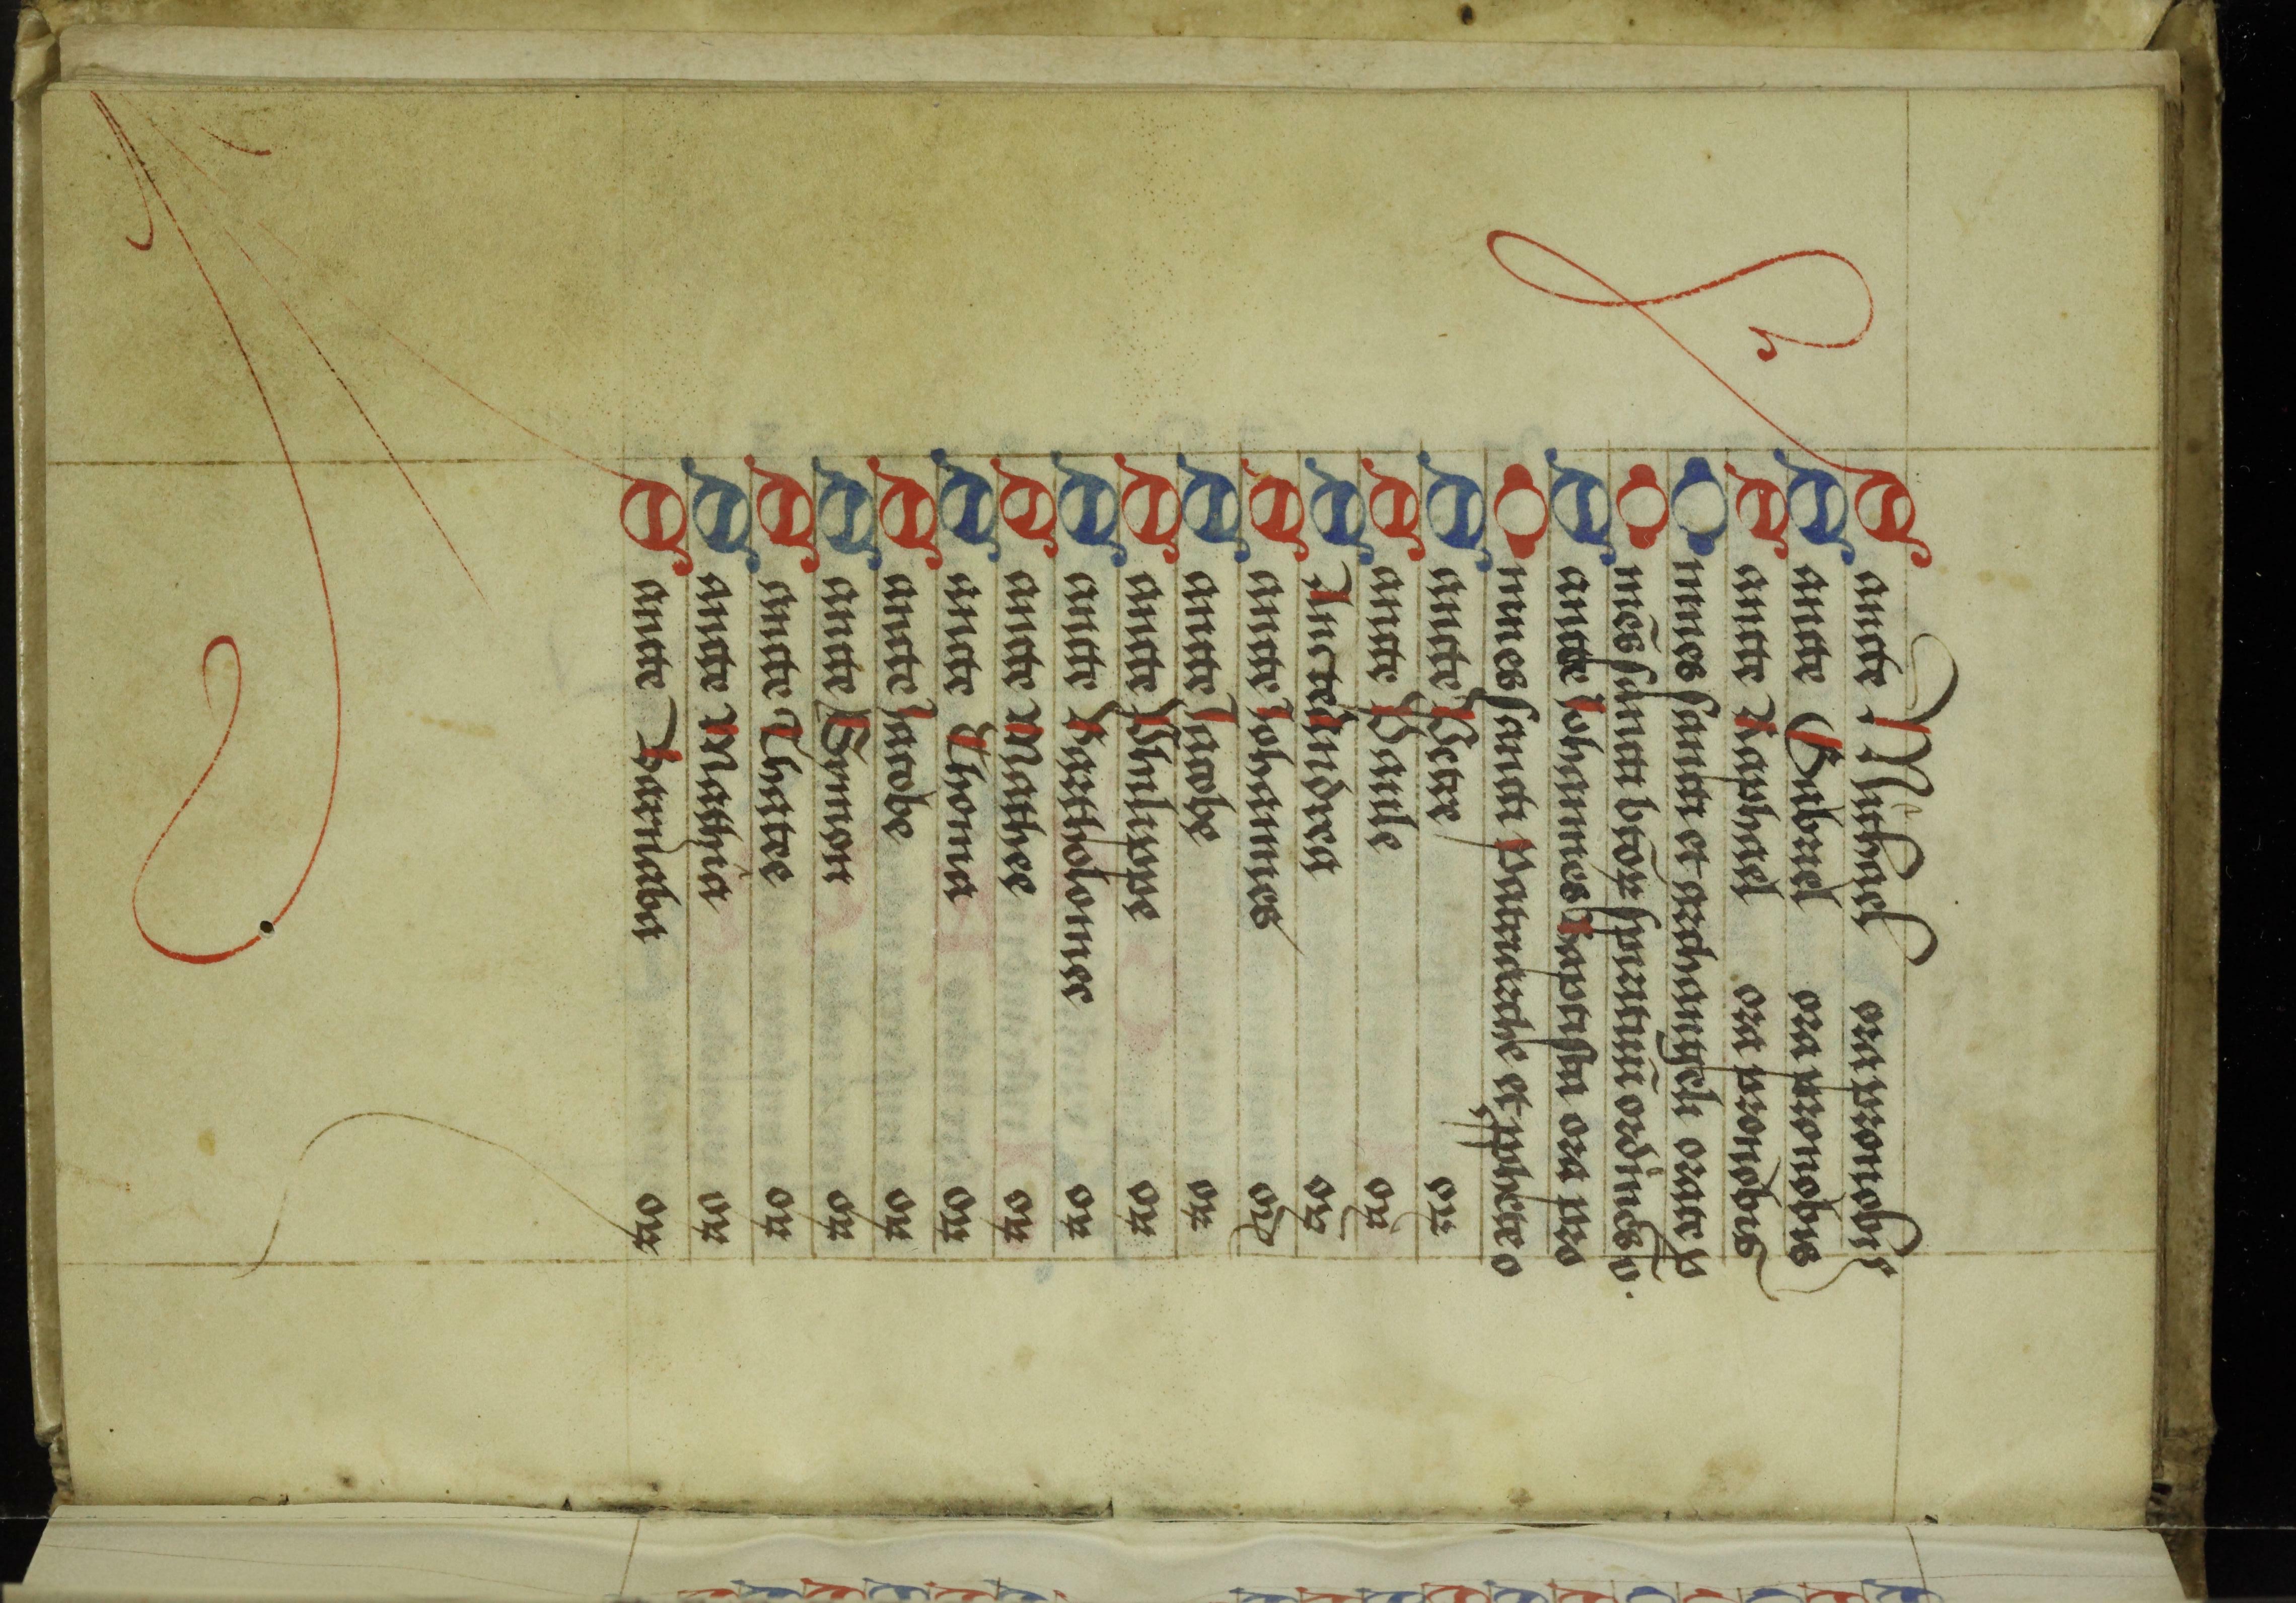 Sancte Michael ora pro nobis
Sancte Gabriel ora pro nobis
Sancte Raphael ora pro nobis
Omnes sancti et archangeli orate p
Omēs sancti btōꝝ spirituū ordines o.
Sancte Johannes baptista ora pro
Omnes sancti Patriarche et pphete o
Sancte Petre or
Sancte Paule or
Sancte Andrea or
Sancte Johannes or
Sancte Jacobe or
Sancte Philippe or
Sancte Bartholomee or
Sancte Mathee or
Sancte Thoma or
Sancte Jacobe or
Sancte Symon or
Sancte Thatee or
Sancte Mathia or
Sancte Barnaba or